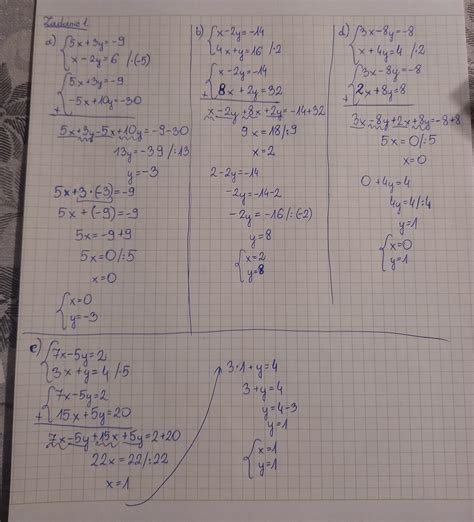 Zadanie 1.
a) { 5x+3y=-9
x-2y=6 /·(-5)
{ 5x+3y=-9
+ -5x+10y=-30
5x+3y-5x+10y=-9-30
13y=-39 /:13
y=-3
5x+3·(-3)=-9
5x+(-9)=-9
5x=-9+9
5x=0/:5
x=0
{ x=0
y=-3
b) { x-2y=-14
4x+y=16 /·2
{ x-2y=-14
+ 8x+2y=32
x-2y+8x+2y=-14+32
9x=18/:9
x=2
2-2y=-14
-2y=-14-2
-2y=-16/:(-2)
y=8
{ x=2
y=8
d) { 3x-8y=-8
x+4y=4 /·2
{ 3x-8y=-8
+ 2x+8y=8
3x-8y+2x+8y=-8+8
5x=0/:5
x=0
0+4y=4
4y=4/:4
y=1
{ x=0
y=1
e) { 7x-5y=2
3x+y=4 /·5
{ 7x-5y=2
+ 15x+5y=20
7x-5y+15x+5y=2+20
22x=22/:22
x=1
3·1+y=4
3+y=4
y=4-3
y=1
{ x=1
y=1